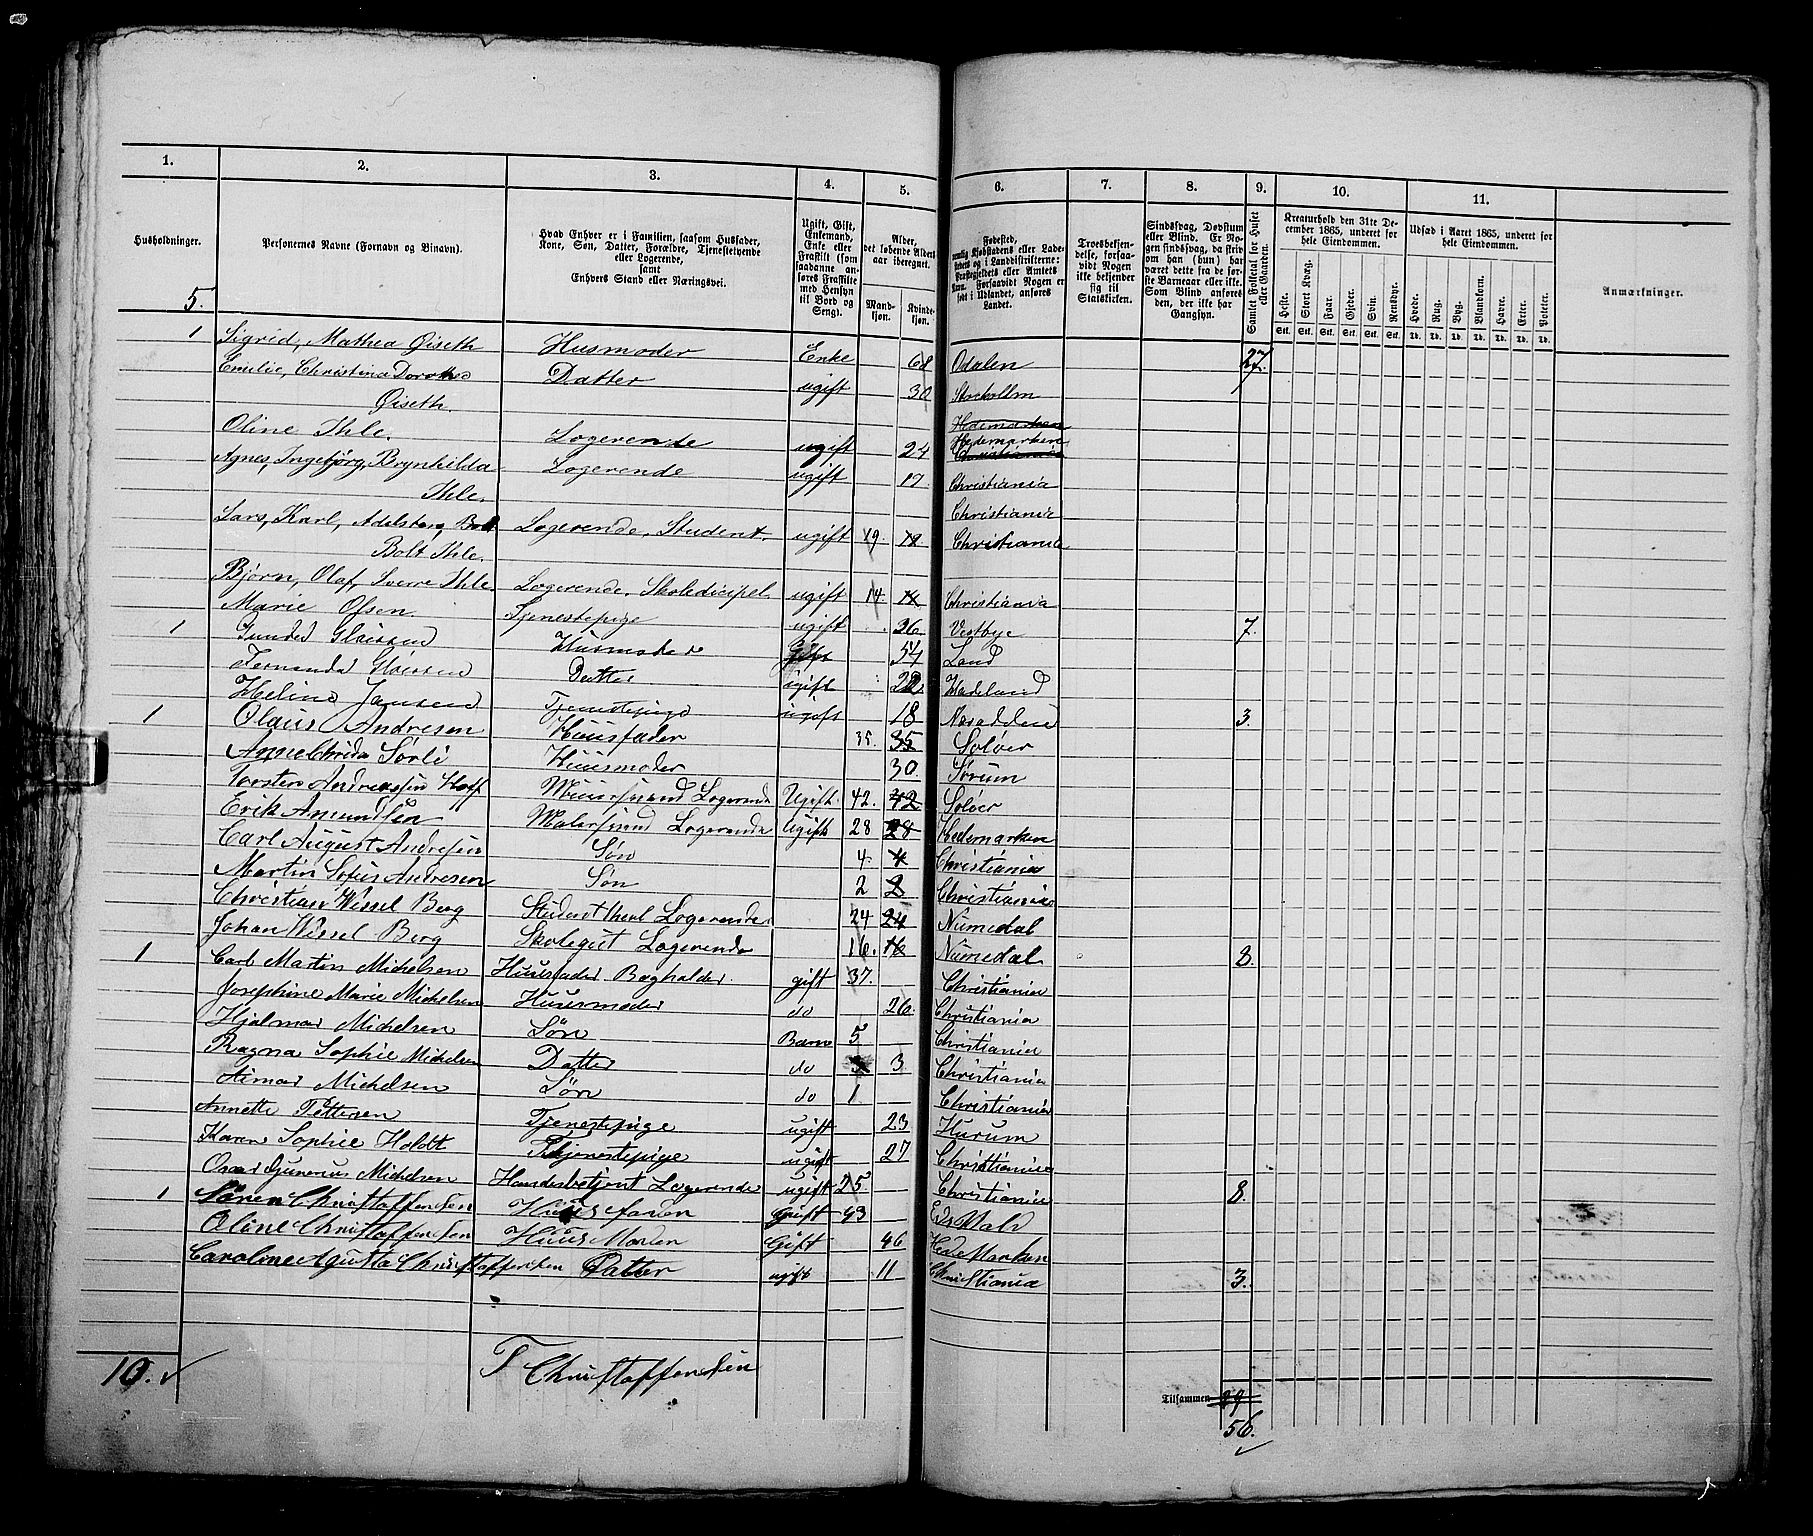 1. 2. 3. 4. 5. 6. 7. 8. 9. 10. 11.
Husholdninger.
Personernes Navne (Fornavn og Binavn).
Hvad Enhver er i Familien, saasom Husfader,
Kone, Søn, Datter, Forældre, Tjenestetyende
eller Logerende,
samt
Enhvers Stand eller Næringsvei.
Ugift, Gift,
Enkemand,
Enke eller
Fraskilt (som
saadanne an-
føres Fraskilte
med Hensyn
til Bord og
Seng).
Alder,
det løbende Alders-
aar iberegnet.
Mand-
kjøn.
Kvinde-
kjøn.
Fødested,
Troesbekjen-
delse, forsaa-
vidt Nogen
ikke bekjender
sig til
Statskirken.
Sindssvag, Døvstum
eller Blind. Er No-
gen sindssvag, da skriv
om han (hun) har
været dette fra de før-
ste Barneaar eller ikke.
Som Blind anføres
den, der ikke har
Gangsyn.
Samlet Folketal for Huset
eller Gaarden.
Kreaturhold den 31te De-
cember 1865, underet for
hele Eiendommen.
Heste. Stort Kvæg. Faar. Gjeder. Svin. Rensdyr.
Stk. Stk. Stk. Stk. Stk. Stk.
Udsæd i Aaret 1865, underet for
hele Eiendommen.
Hvede. Rug. Byg. Blandkorn. Havre. Erter. Poteter.
Td. Td. Td. Td. Td. Td. Td.
Anmærkninger.
5.
1 Sigrid, Mathea Øiseth Husmoder Enke 68 Odalen 27.
Emilie, Christina Dorothea Datter ugift 30 Stockollm
Øiseth.
Hedemarken
Oline Ihle. Logerende ugift 24 Hedemarken
Christiania
Agnes, Ingebjørg, Brynhilda Logerende ugift 17 Christiania
Ihle.
Christiania
Lars, Karl, Adelsten, Bolt Logerende, Student. ugift 19. 19 Christiania
Bolt Ihle.
Bjørn, Olaf, Sverre Ihle Logerende, Skoledicipel ugift 14. 14 Christiania
Marie Olsen Tjenestepige ugift 26. Vestbye 7.
1 Husmoder Gift 54 Land
Fernanda Datter ugift Hadeland
Heline Jansen Tjenestepige ugift 18 Næsodden 3.
1 Olaus Andresen Huusfader 35. 35 Soløer
Sørli Huusmoder 30. Sørum
Torsten Andreassen Hoff Muursvend Logerende Ugift 42. 42 Soløer
Erik Amundsen Malersvend Logerende Ugift 28 28 Hedemarken
Carl August Andresen Søn 4. 4 Christiania
Martin Sofus Andresen Søn 2 2 Christiania
Christian Wessel Berg Student theol Logerende 24 24 Numedal
Johan Wessel Berg Skolegut Logerende 16. 16 Numedal 8.
1 Carl Martin Michelsen Huusfader Bogholder. gift 37. Christiania
Josephine Marie Michelsen Huusmoder do 26. Christiania
Hjalmar Michelsen Søn Barn 5 Christiania
Ragna Sophie Michelsen Datter do 3 3 Christiania
Michelsen Søn do 1 Christiania
Annette Pettersen Tjenestepige ugift 23 Hurum
Karen Sophie Holdt Tjenestepige ugift 27 Christiania
Michelsen Handesbetjent Logerende ugift 25 Christiania 8.
1 Sören Christoffersen Huusfader Gift 43 Eidsvold
Oline Christoffersen Huus Moder Gift 46 HedeMarken
Caroline Agusta Christoffersen Datter ugift 11 Christiania 3.
10. T Christoffersen
Tilsammen 29
56.